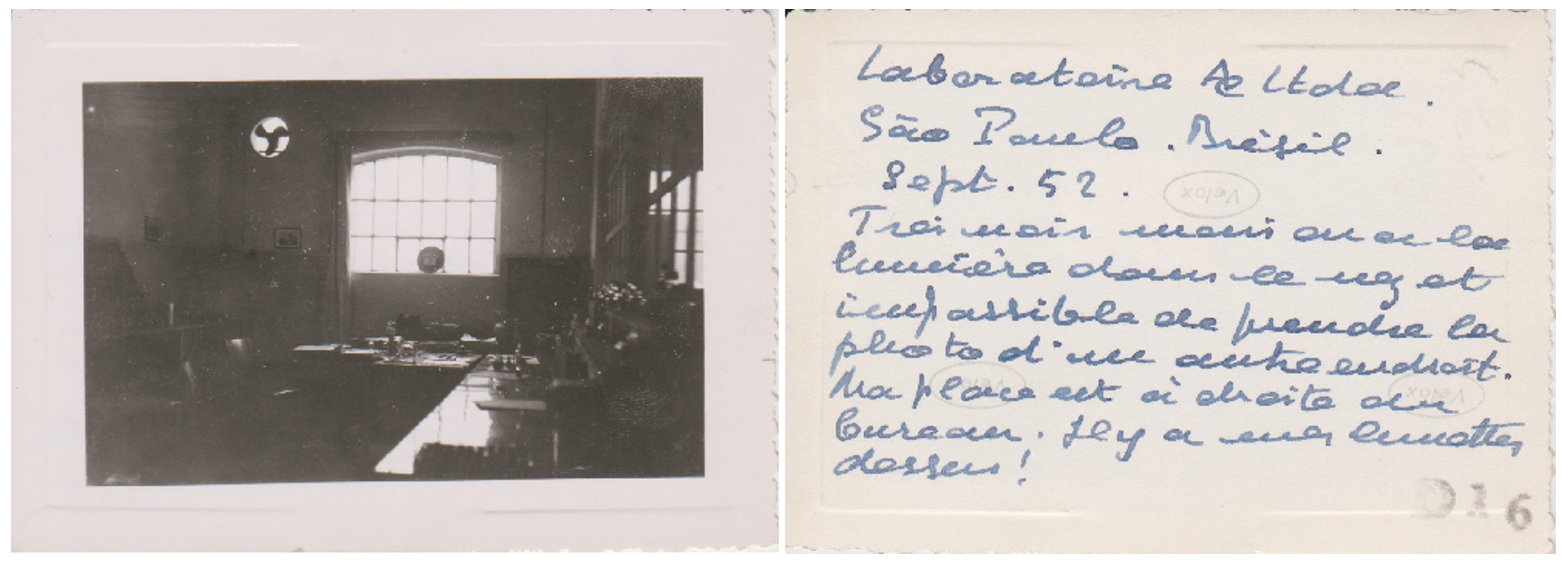 Laboratoire Ae Ltda.
São Paulo. Brésil.
Sept. 52.
Velox
Très noir mais on a la
lumière dans le nez et
impossible de prendre la
photo d'un autre endroit.
Ma place est à droite du
bureau. Il y a mes lunettes
dessus!
Velox
Velox
016